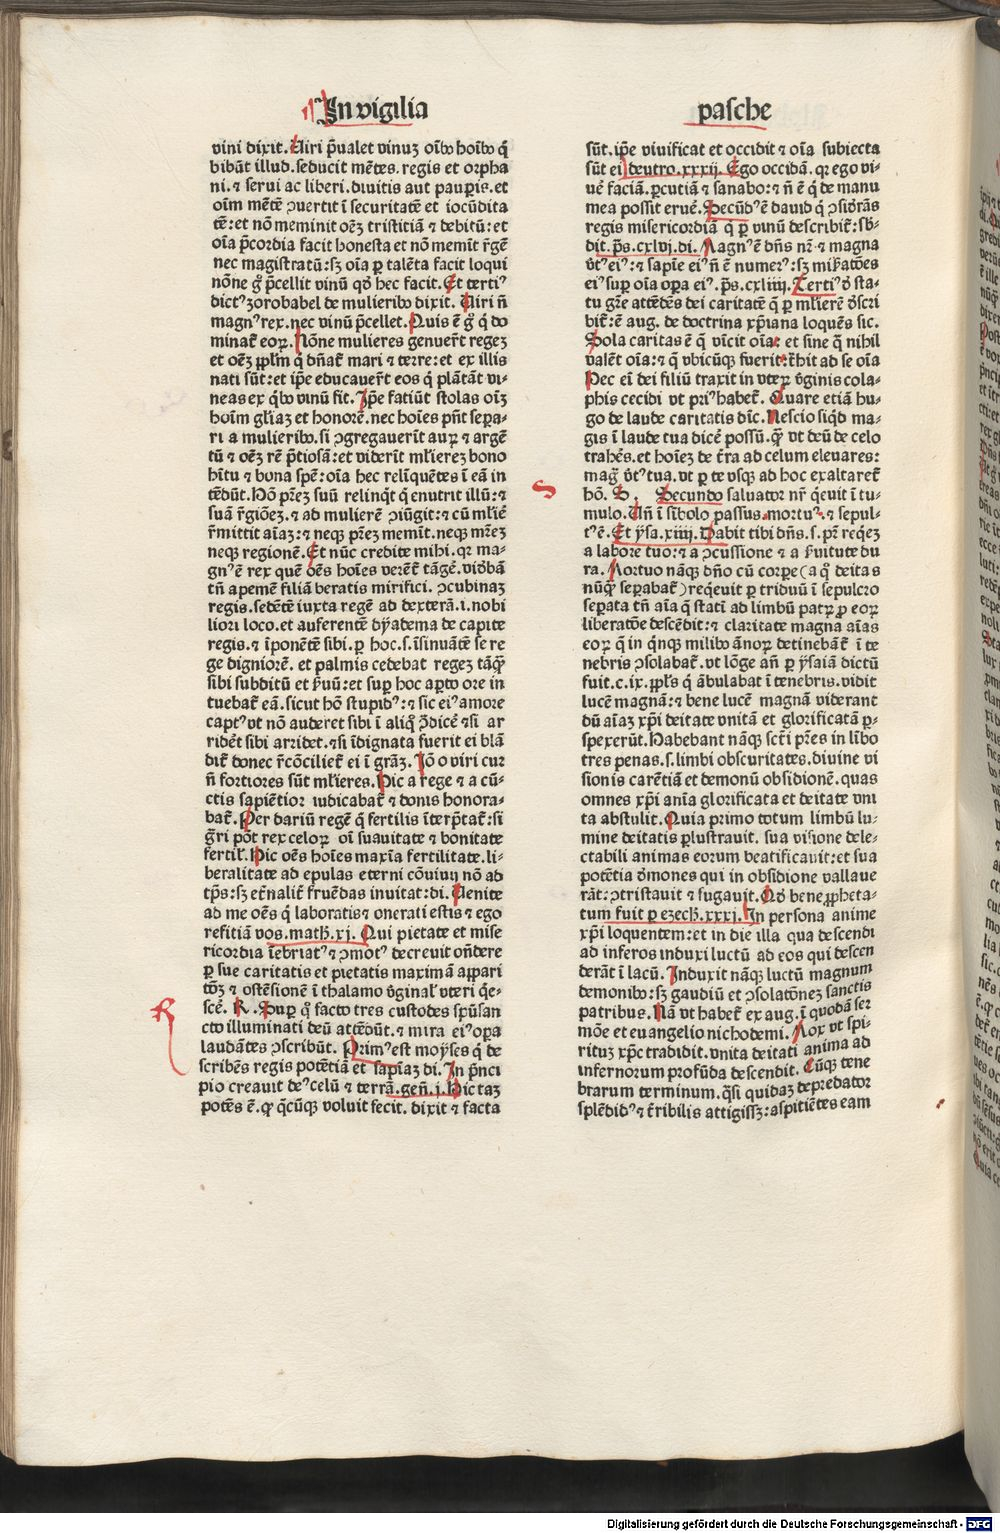 In vigilia
pasche
vini dixit. Uiri p̄ualet vinuꝫ oīb9 hoīb9 q̇
bibūt illud. seducit mētes. regis et orpha
ni. ⁊ serui ac liberi. diuitis aut pauꝑis. et
oīm mētē ꝯuertit ī securitatē et iocūdita
tē: et nō meminit oēꝫ tristitiā ⁊ debitū: et
oīa p̄cordia facit honesta et nō memīt r̄gē
nec magistratū: sꝫ oīa ꝑ talēta facit loqui
nōne gͦ p̄cellit vinū qd̄ hec facit. Et terti9
dict9 ꝫorobabel de mulierib9 dixit. Uiri n̄
magn9 rex. nec vinū p̄cellet. Quis ē gͦ q̇ do
minat᷑ eoꝝ. Nōne mulieres genuer̄t regeꝫ
et oēꝫ ꝓplm̄ q̇ dn̄at᷑ mari ⁊ terre: et ex illis
nati sūt: et ip̄e educauer̄t eos q̇ plātāt vi-
neas ex q̇b9 vinū fit. Ip̄e faciūt stolas oīꝫ
hoīm gl̄iaꝫ et honorē. nec hoīes pn̄t seꝑa-
ri a mulierib9. si ꝯgregauerīt auꝝ ⁊ argē
tū ⁊ oēꝫ rē p̄tiosā: et viderīt ml̄iereꝫ bono
hītu ⁊ bona spē: oīa hec relīquētes ī eā in
tēdūt. Hō pr̄eꝫ suū relinq̄t q̇ enutrit illū: ⁊
suā r̄giōeꝫ. ⁊ ad mulierē ꝯiūgit: ⁊ cū ml̄iē
r̄mittit aīaꝫ: ⁊ neqꝫ pr̄eꝫ memīt. neqꝫ mr̄eꝫ
neqꝫ regionē. Et nūc credite mihi. qꝛ ma-
gn9 ē rex quē oēs hoīes verēt᷑ tāgē. vidēbā
tn̄ apemē filiā beratis mirifici. ꝯcubinaꝫ
regis. sedētē iuxta regē ad dexterā. i. nobi
liori loco. et auferentē dyadema de capite
regis. ⁊ īponētē sibi. ꝑ hoc. s. īsinuātē se re
ge digniorē. et palmis cedebat regeꝫ tāqͣꝫ
sibi subditū et s̄uū: et suꝑ hoc aꝑto ore in
tuebat᷑ eā. sicut hō stupid9: ⁊ sic ei9 amore
capt9 vt nō auderet sibi ī aliqͦ ꝯ̄dicē ⁊ si ar
ridēt sibi arridet. ⁊ si īdignata fuerit ei blā
dit᷑ donec r̄cōciliet᷑ ei ī grāꝫ. Iō o viri cur
n̄ fortiores sūt ml̄ieres. Hic a rege ⁊ a cū-
ctis sapiētior iudicabat᷑ ⁊ donis honora-
bat᷑. Per dariū regē q̇ fertilis īterp̄tat᷑: si
gr̄i pōt rex celoꝝ oī suauitate ⁊ bonitate
fertil̄. Hic oēs hoīes maxīa fertilitate. li-
beralitate ad epulas eterni cōuiuij nō ad
tp̄s: sꝫ et̄nalit᷑ fruēdas inuitat: di. Uenite
ad me oēs q̇ laboratis ⁊ onerati estis ⁊ ego
reficiā vos. math̄. xj. Qui pietate et mise
ricordia īebriat9 ⁊ ꝯmot9 decreuit on̄dere
ꝑ sue caritatis et pietatis maximā appari
tōꝫ ⁊ ostēsionē ī thalamo v̄ginal̄ vteri q̇e-
scē. R. Suꝑ qͦ facto tres custodes spūsan
cto illuminati deū attēdūt. ⁊ mira ei9 oꝑa
laudātes ꝯscribūt. Prim9 est moyses q̇ de
scribēs regis potētiā et sapiaꝫ di. In p̄nci
pio creauit de9 celū ⁊ terrā. gen̄. j. Hic taꝫ
potēs ē. ꝙ qͥcūqꝫ voluit fecit. dixit ⁊ facta
sūt. ip̄e viuificat et occidit ⁊ oīa subiecta
sūt ei deutro. xxxij. Ego occidā. qꝛ ego vi-
uē faciā. ꝑcutiā ⁊ sanabo: ⁊ n̄ ē q̇ de manu
mea possit eruē. Secūd9 ē dauid q̇ ꝯsid̄rās
regis misericordiā q̄ ꝑ vinū describit᷑: sb̄-
dit. ps̄. cxlvj. di. Magn9 ē dn̄s nr̄ ⁊ magna
v̄t9 ei9: ⁊ sapīe ei9 n̄ ē numer9: sꝫ mīratōes
ei9 suꝑ oīa oꝑa ei9. ps̄. cxliiij. Terti9 d̄ sta-
tu gr̄e attēdēs dei caritatē q̄ ꝑ ml̄ierē d̄scri
bit᷑: ē aug. de doctrina xp̄iana loquēs sic.
Sola caritas ē q̄ vīcit oīa: et sine q̄ nihil
valēt oīa: ⁊ q̄ vbicūqꝫ fuerit: t̄hit ad se oīa
Hec eī dei filiū traxit in vteꝝ v̄ginis cola-
phis cecidi vt pri9 habet᷑. Quare etiā hu-
go de laude caritatis dīc. Nescio siqd̄ ma-
gis ī laude tua dicē possū. qͣꝫ vt deū de celo
trahēs. et hoīeꝫ de t̄ra ad celum eleuares:
maḡ v̄t9 tua. vt ꝑ te vsqꝫ ad hoc exaltaret᷑
hō. S. Secundo saluator nr̄ q̇euit ī tu-
mulo. Un̄ ī sībolo passus. mortu9. ⁊ sepul-
t9 ē. Et ysa. xiiij. Dabit tibi dn̄s. s. pr̄ reqͥeꝫ
a labore tuo: ⁊ a ꝯcussione ⁊ a s̄uitute du
ra. Mortuo nāqꝫ dn̄o cū corꝑe (a qͦ deitas
nūqͣꝫ seꝑabat᷑) reqͥeuit ꝑ triduū ī sepulcro
seꝑata tn̄ aīa q̄ statī ad limbū patꝝ ꝓ eoꝝ
liberatōe descēdit: ⁊ claritate magna aīas
eoꝝ q̄ in qͥnqꝫ milib9 ānoꝝ detinebāt᷑ ī te
nebris ꝯsolabat᷑. vt lōge an̄ ꝑ ysaiā dictū
fuit. c. ix. ꝓpl̄s q̇ ābulabat ī tenebris. vidit
lucē magnā: ⁊ bene lucē magnā viderant
dū aīaꝫ xp̄i deitate vnitā et glorificatā ꝑ-
spexerūt. Habebant nāqꝫ sct̄i pr̄es in līb9
tres penas. s. limbi obscuritates. diuine vi
sionis carētiā et demonū obsidionē. quas
omnes xp̄i anīa glorificata et deitate vni
ta abstulit. Quia primo totum limbū lu-
mine deitatis ꝑlustrauit. sua visione dele-
ctabili animas eorum beatificauit: et sua
potētia d̄mones qui in obsidione vallaue
rāt: ꝯtristauit ⁊ fugauit. Qd̄ bene ꝓpheta-
tum fuit ꝑ ezech̄. xxxj. In persona anime
xp̄i loquentem: et in die illa qua descendi
ad inferos induxi luctū ad eos qui descen
derāt ī lacū. Induxit nāqꝫ luctū magnum
demonib9: sꝫ gaudiū et ꝯsolatōneꝫ sanctis
patribus. Nā vt habet᷑ ex aug. ī quodā ser
mōe et euangelio nichodemi. Mox vt spi-
rituꝫ xp̄c tradidit. vnita deitati anima ad
infernorum profūda descendit. Cūqꝫ tene
brarum terminum. q̄si quidaꝫ depredator
splēdid9 ⁊ t̄ribilis attigissꝫ: aspitiētes eam
R
S
Digitalisierung gefördert durch die Deutsche Forschungsgemeinschaft - DFG